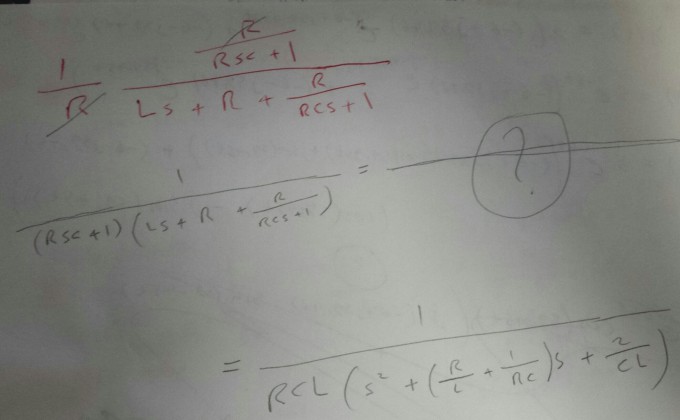 1/R (R/(RSC + 1))/(LS + R + R/(RCS + 1))
1/((RSC + 1)(LS + R + R/(RCS + 1))) = ?
= 1/(RCL(s² + (R/L + 1/RC)s + 2/CL))